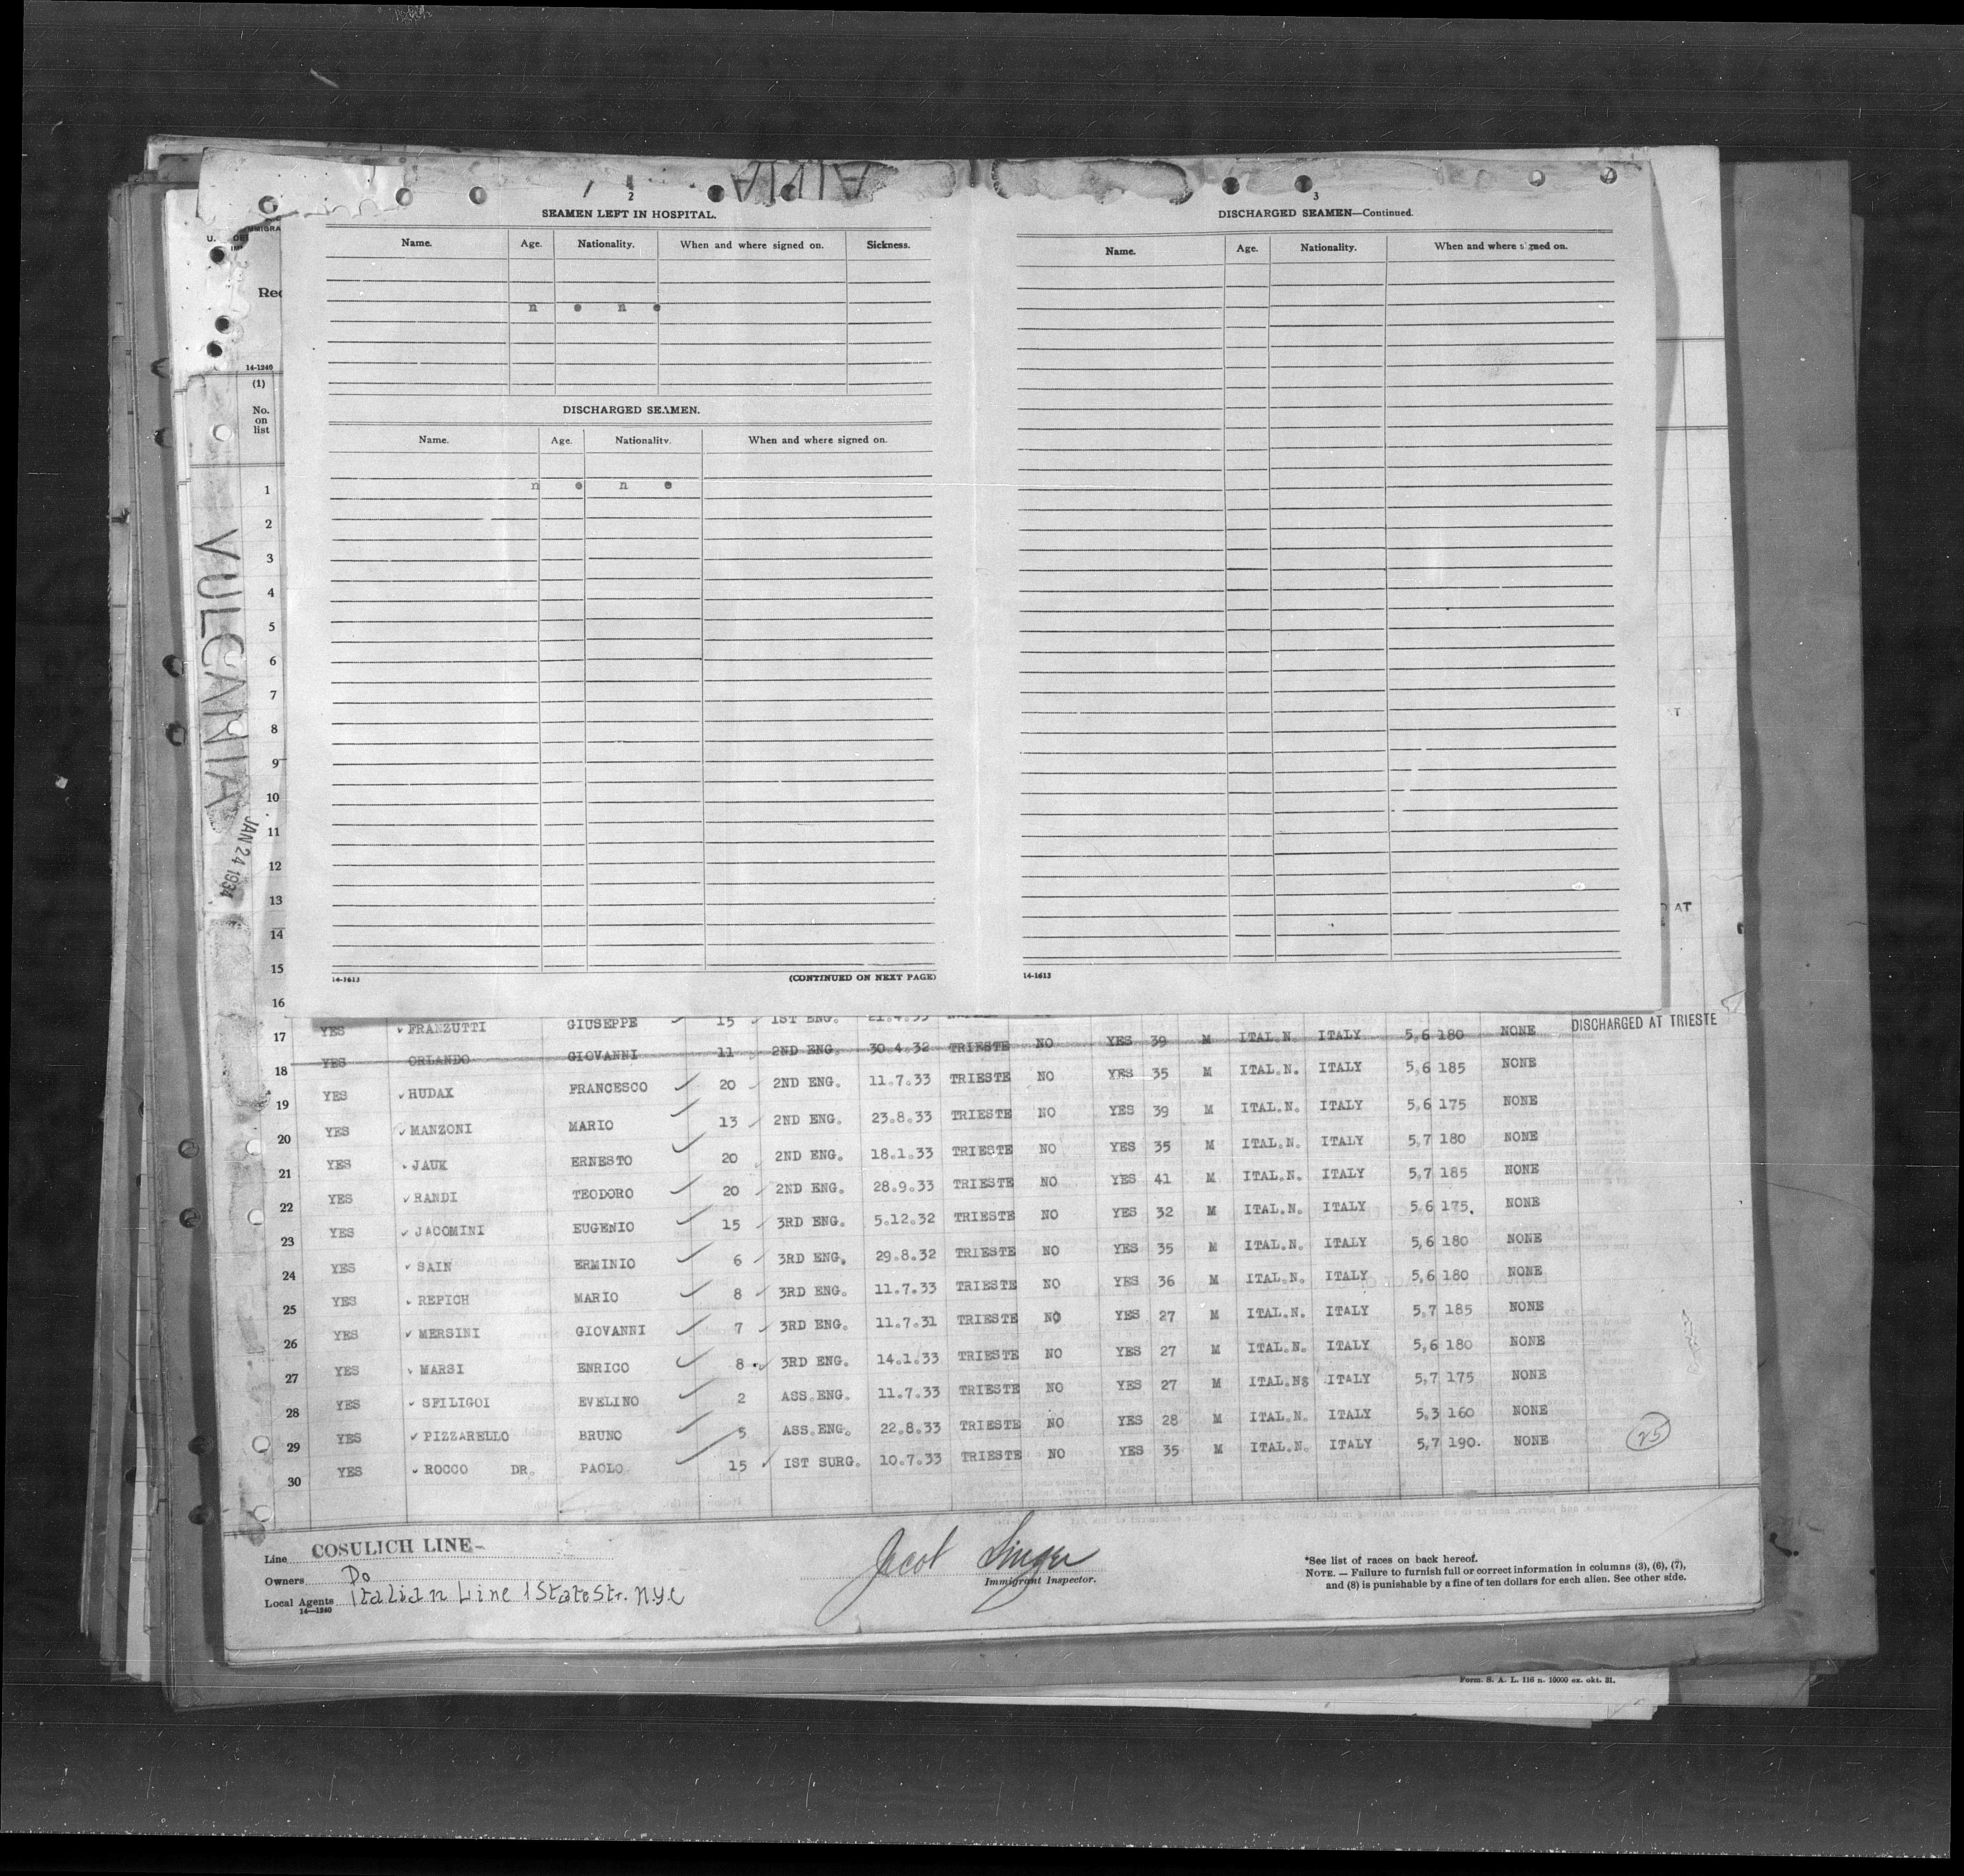 2
SEAMEN LEFT IN HOSPITAL.
Name. Age. Nationality. When and where signed on. Sickness.
n o n e
DISCHARGED SEAMEN.
Name. Age. Nationality. When and where signed on.
n o n e
14-1613
(CONTINUED ON NEXT PAGE)
3
DISCHARGED SEAMEN—Continued.
Name. Age. Nationality. When and where signed on.
14-1613
U.
Rec
14-1240
(1)
No.
on
list
VULCANIA
JAN 24 1934
1
2
3
4
5
6
7
8
9
10
11
12
13
14
15
16
17 YES FRANZUTTI GIUSEPPE 15 1ST ENG. 21.4.33
DISCHARGED AT TRIESTE
YES ORLANDO GIOVANNI 11 2ND ENG. 30.4.32 TRIESTE NO YES 39 M ITAL.N. ITALY 5,6 180 NONE
18 YES HUDAX FRANCESCO 20 2ND ENG. 11.7.33 TRIESTE NO YES 35 M ITAL.N. ITALY 5,6 185 NONE
19 YES MANZONI MARIO 13 2ND ENG. 23.8.33 TRIESTE NO YES 39 M ITAL.N. ITALY 5,6 175 NONE
20 YES JAUK ERNESTO 20 2ND ENG. 18.1.33 TRIESTE NO YES 35 M ITAL.N. ITALY 5,7 180 NONE
21 YES RANDI TEODORO 20 2ND ENG. 28.9.33 TRIESTE NO YES 41 M ITAL.N. ITALY 5,7 185 NONE
22 YES JACOMINI EUGENIO 15 3RD ENG. 5.12.32 TRIESTE NO YES 32 M ITAL.N. ITALY 5,6 175. NONE
23 YES SAIN ERMINIO 6 3RD ENG. 29.8.32 TRIESTE NO YES 35 M ITAL.N. ITALY 5,6 180 NONE
24 YES REPICH MARIO 8 3RD ENG. 11.7.33 TRIESTE NO YES 36 M ITAL.N. ITALY 5,6 180 NONE
25 YES MERSINI GIOVANNI 7 3RD ENG. 11.7.31 TRIESTE NO YES 27 M ITAL.N. ITALY 5,7 185 NONE
26 YES MARSI ENRICO 8 3RD ENG. 14.1.33 TRIESTE NO YES 27 M ITAL.N. ITALY 5,6 180 NONE
27 YES SFILIGOI EVELINO 2 ASS.ENG. 11.7.33 TRIESTE NO YES 27 M ITAL.NS ITALY 5,7 175 NONE
28 YES PIZZARELLO BRUNO 5 ASS.ENG. 22.8.33 TRIESTE NO YES 28 M ITAL.N. ITALY 5,3 160 NONE
29 YES ROCCO DR. PAOLO 15 IST SURG. 10.7.33 TRIESTE NO YES 35 M ITAL.N. ITALY 5,7 190. NONE
25
30
Line COSULICH LINE-
Owners Do
Local Agents Italian Line 1 State Str. N.Y.C
14—1240
Jacob Singer
Immigrant Inspector.
*See list of races on back hereof.
NOTE. — Failure to furnish full or correct information in columns (3), (6), (7),
and (8) is punishable by a fine of ten dollars for each alien. See other side.
Form. S. A. L. 116 n. 10000 ex. okt. 31.